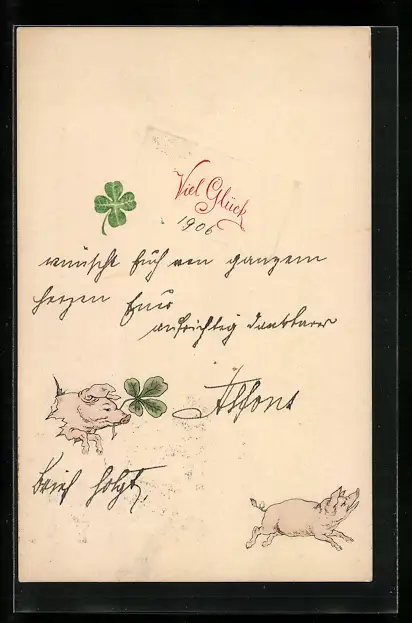 Viel Glück
1906
wünscht Euch von ganzem
Herzen Euer
aufrichtig dankbarer
Alfons
Brief folgt.